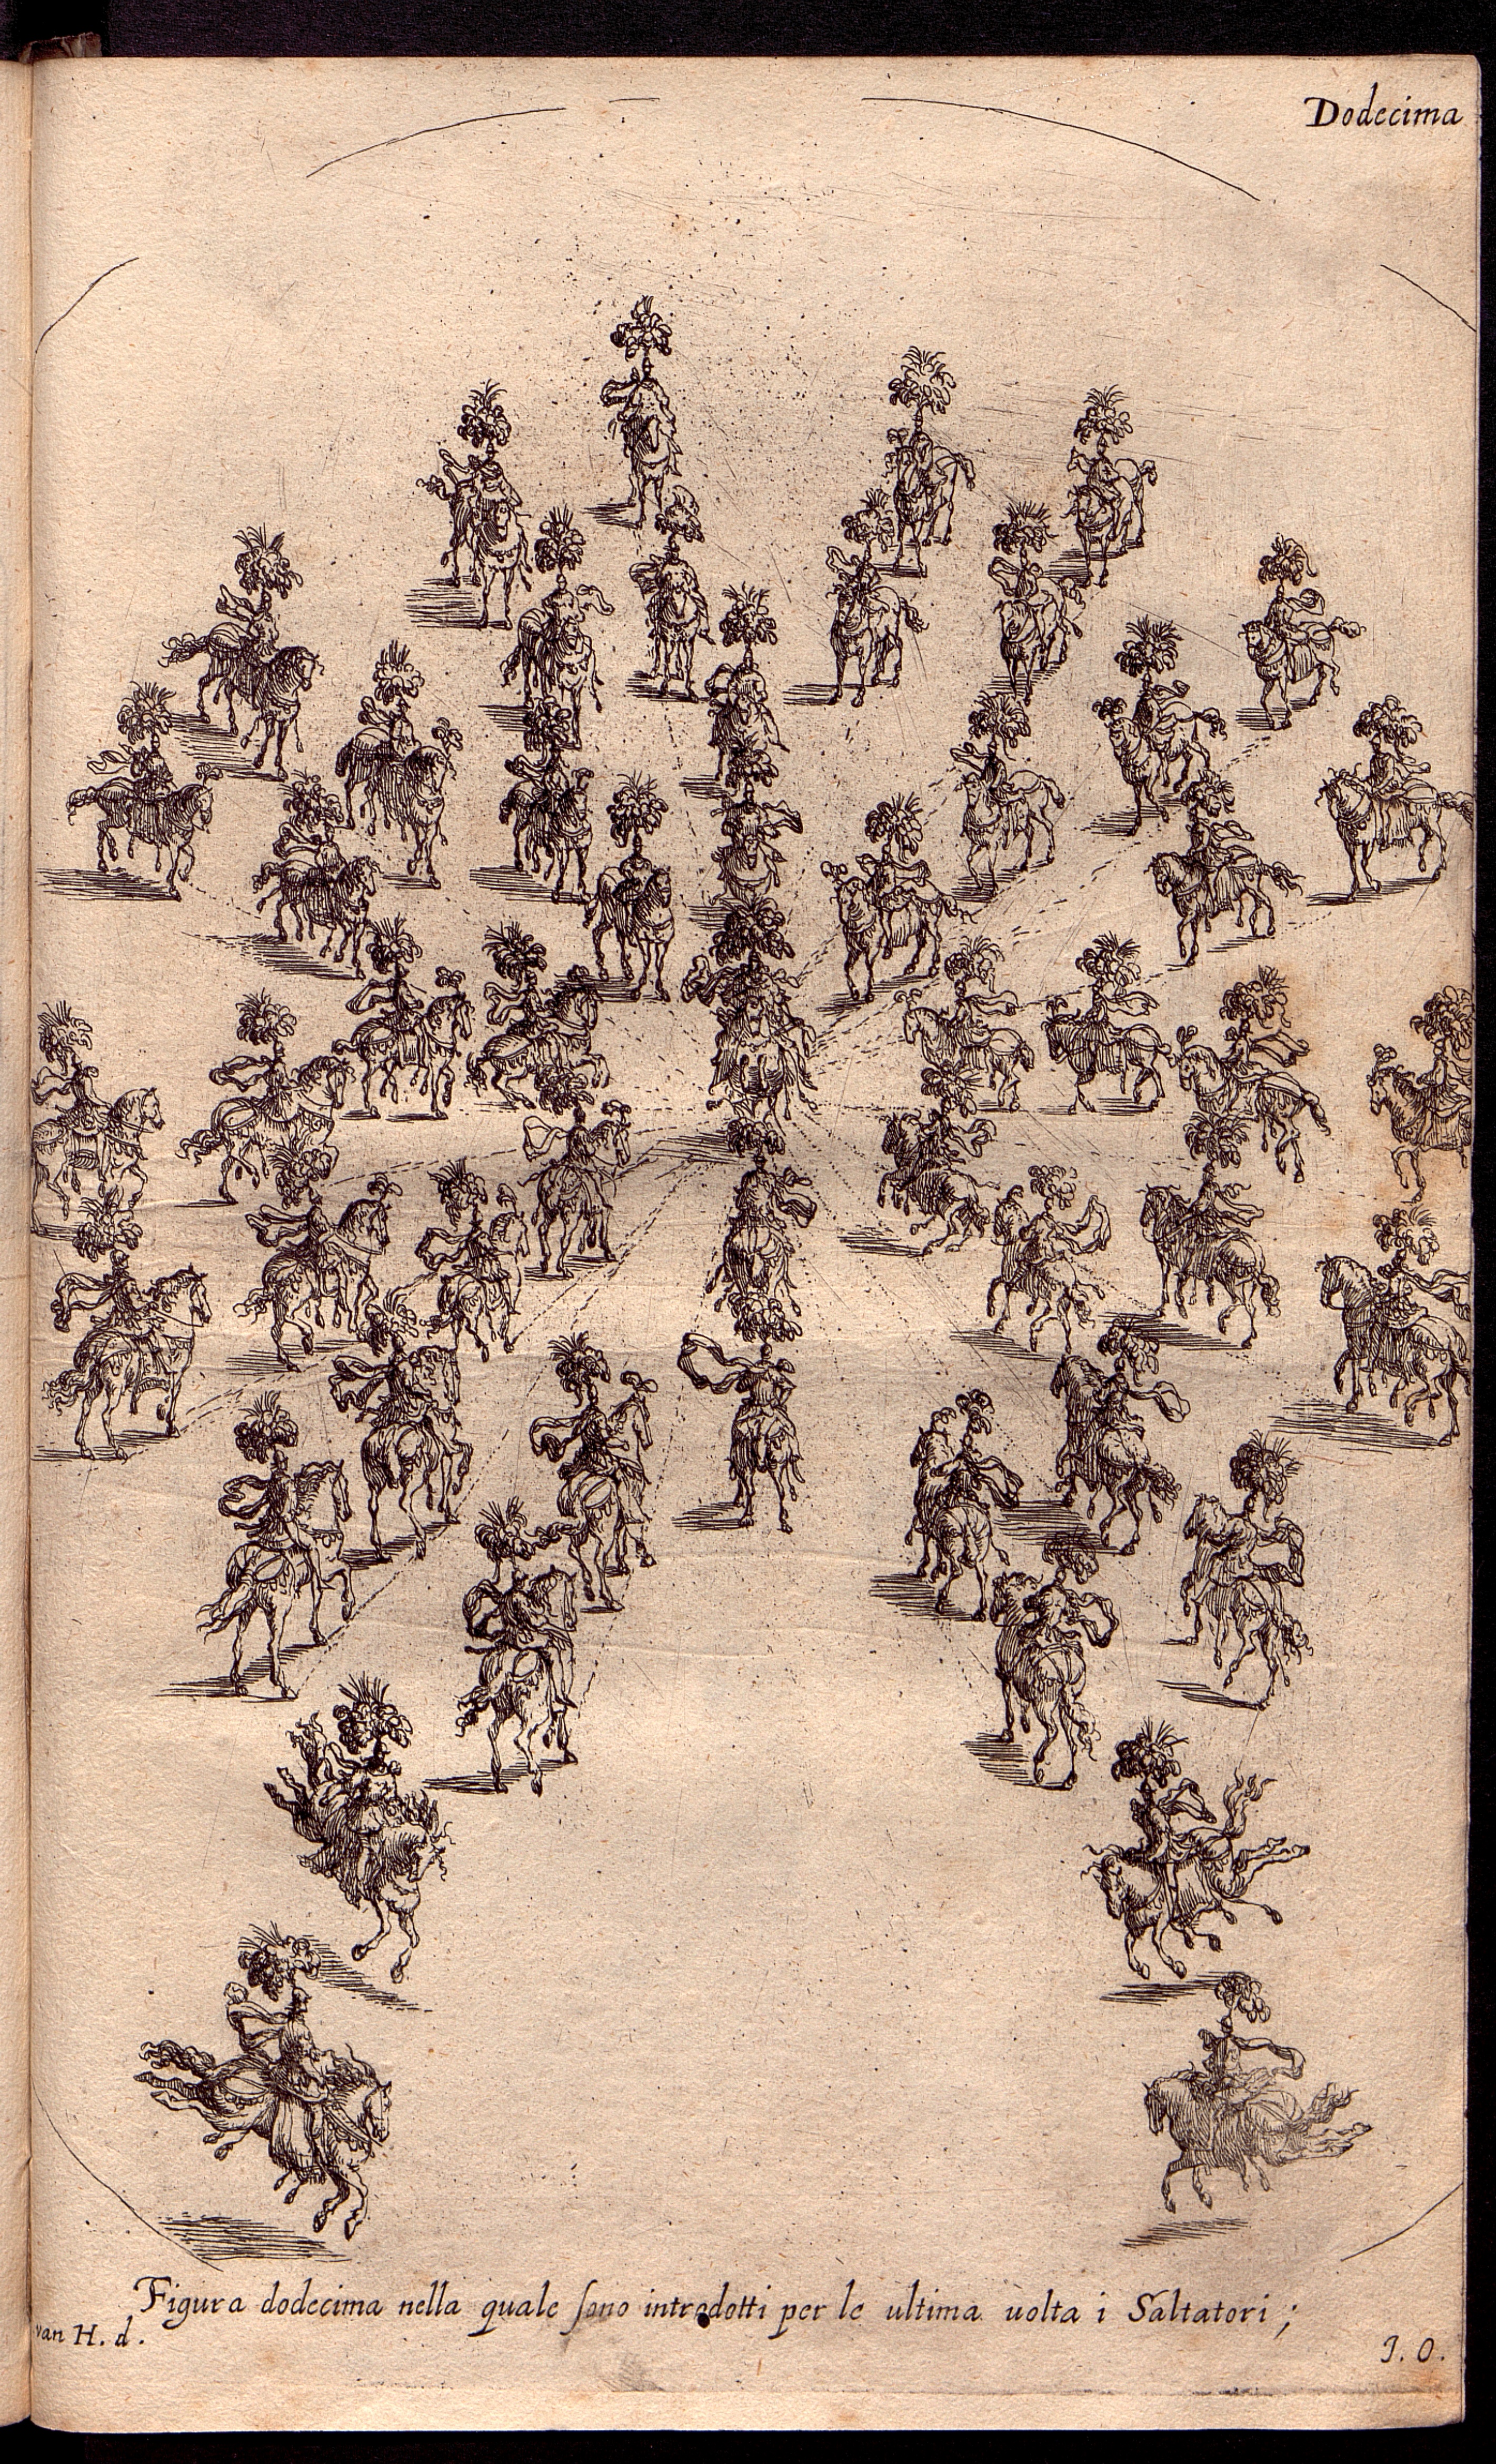 Dodecima
Figura dodecima nella quale sono introdotti per le ultima uolta i Saltatori ;
van H. d.
J. O.